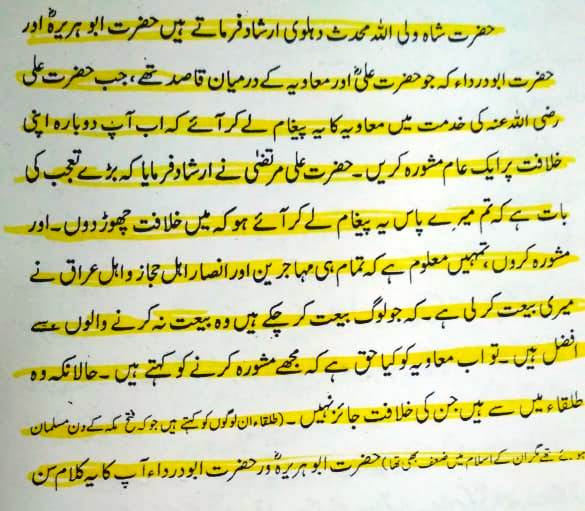 حضرت شاہ ولی اللہ محدث دہلوی ارشاد فرماتے ہیں حضرت ابو ہریرہؓ اور
حضرت ابودرداء کہ جو حضرت علیؓ اور معاویہ کے درمیان قاصد تھے، جب حضرت علی
رضی اللہ عنہ کی خدمت میں معاویہ کا یہ پیغام لے کر آئے کہ اب آپ دوبارہ اپنی
خلافت پر ایک عام مشورہ کریں۔ حضرت علی مرتضیٰ نے ارشاد فرمایا کہ بڑے تعجب کی
بات ہے کہ تم میرے پاس یہ پیغام لے کر آئے ہو کہ میں خلافت چھوڑ دوں۔ اور
مشورہ کروں، تمہیں معلوم ہے کہ تمام ہی مہاجرین اور انصار اہل حجاز و اہل عراق نے
میری بیعت کر لی ہے۔ کہ جو لوگ بیعت کر چکے ہیں وہ بیعت نہ کرنے والوں سے
افضل ہیں۔ تو اب معاویہ کو کیا حق ہے کہ مجھے مشورہ کرنے کو کہتے ہیں۔ حالانکہ وہ
طلقاء میں سے ہیں جن کی خلافت جائز نہیں۔ (طلقاء ان لوگوں کو کہتے ہیں جو کہ فتح مکہ کے دن مسلمان
ہوئے تھے مگر ان کے اسلام میں ضعف بھی تھا) حضرت ابو ہریرہؓ ور حضرت ابودرداء آپ کا یہ کلام سن